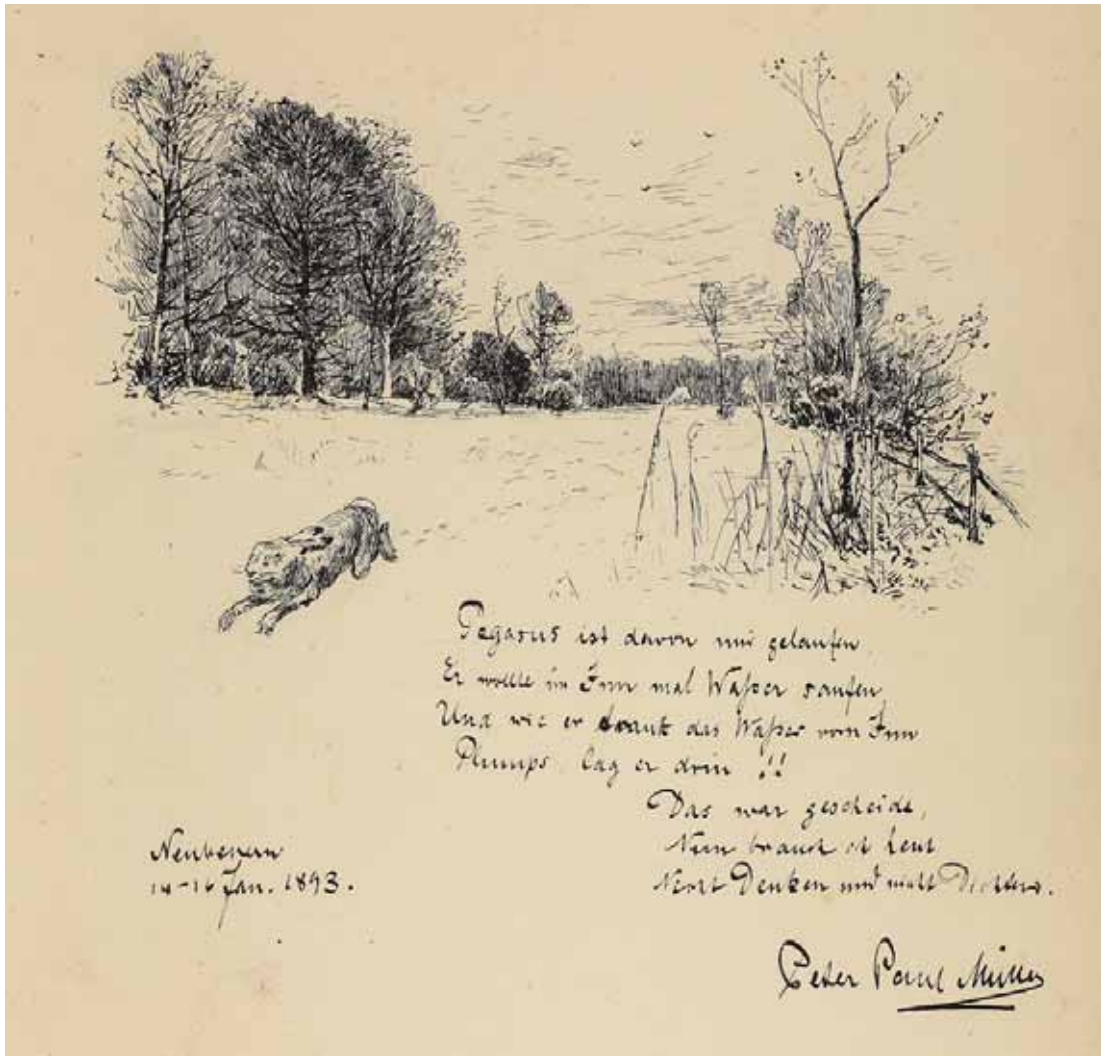 Pegasus ist davon mir gelaufen
Er wollte im Inn mal Waßer saufen
Und wie er trank das Waßer vom Inn
Plumps lag er drin !!
Das war gescheide,
Nun brauch ich heut
Nicht Denken und nicht
Neubeyern
14-16 Jan. 1893.
Peter Paul Müller